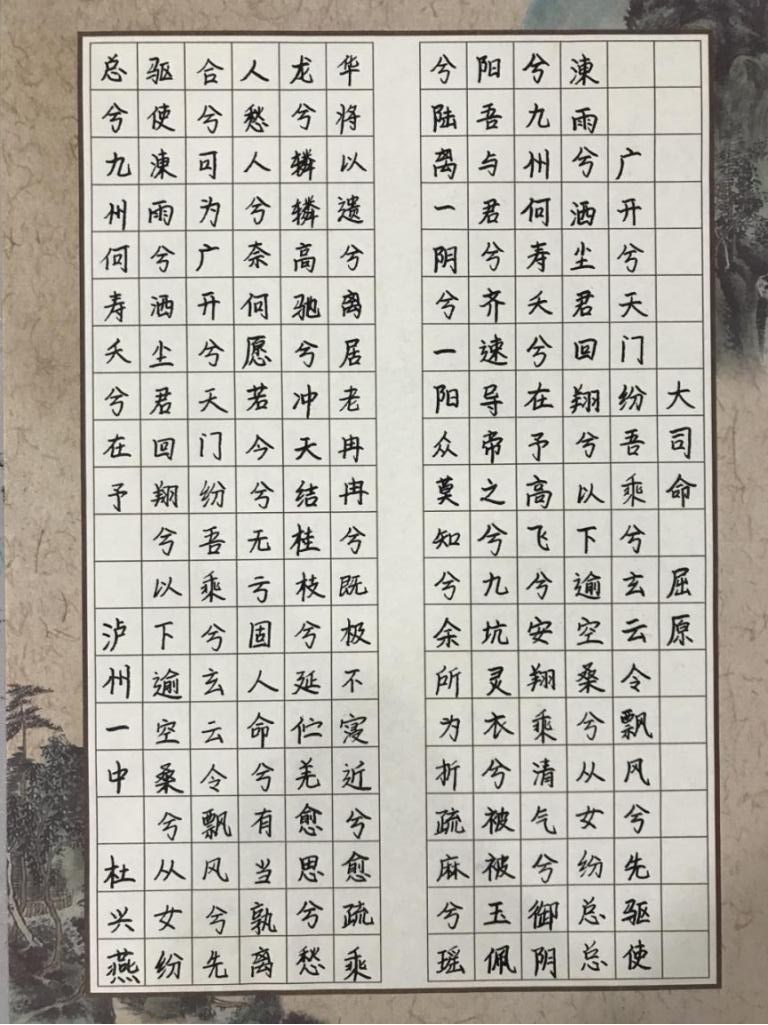 大司命 屈原
广开兮天门纷吾乘兮玄云令飘风兮先驱使
涷雨兮洒尘君回翔兮以下逾空桑兮从女纷总总
兮九州何寿夭兮在予高飞兮安翔乘清气兮御阴
阳吾与君兮齐速导帝之兮九坑灵衣兮被被玉佩
兮陆离一阴兮一阳众莫知兮余所为折疏麻兮瑶
华将以遗兮离居老冉冉兮既极不寖近兮愈疏乘
龙兮辚辚高驰兮冲天结桂枝兮延伫羌愈思兮愁
人愁人兮奈何愿若今兮无亏固人命兮有当孰离
合兮可为广开兮天门纷吾乘兮玄云令飘风兮先
驱使涷雨兮洒尘君回翔兮以下逾空桑兮从女纷
总兮九州何寿夭兮在予 泸州一中 杜兴燕